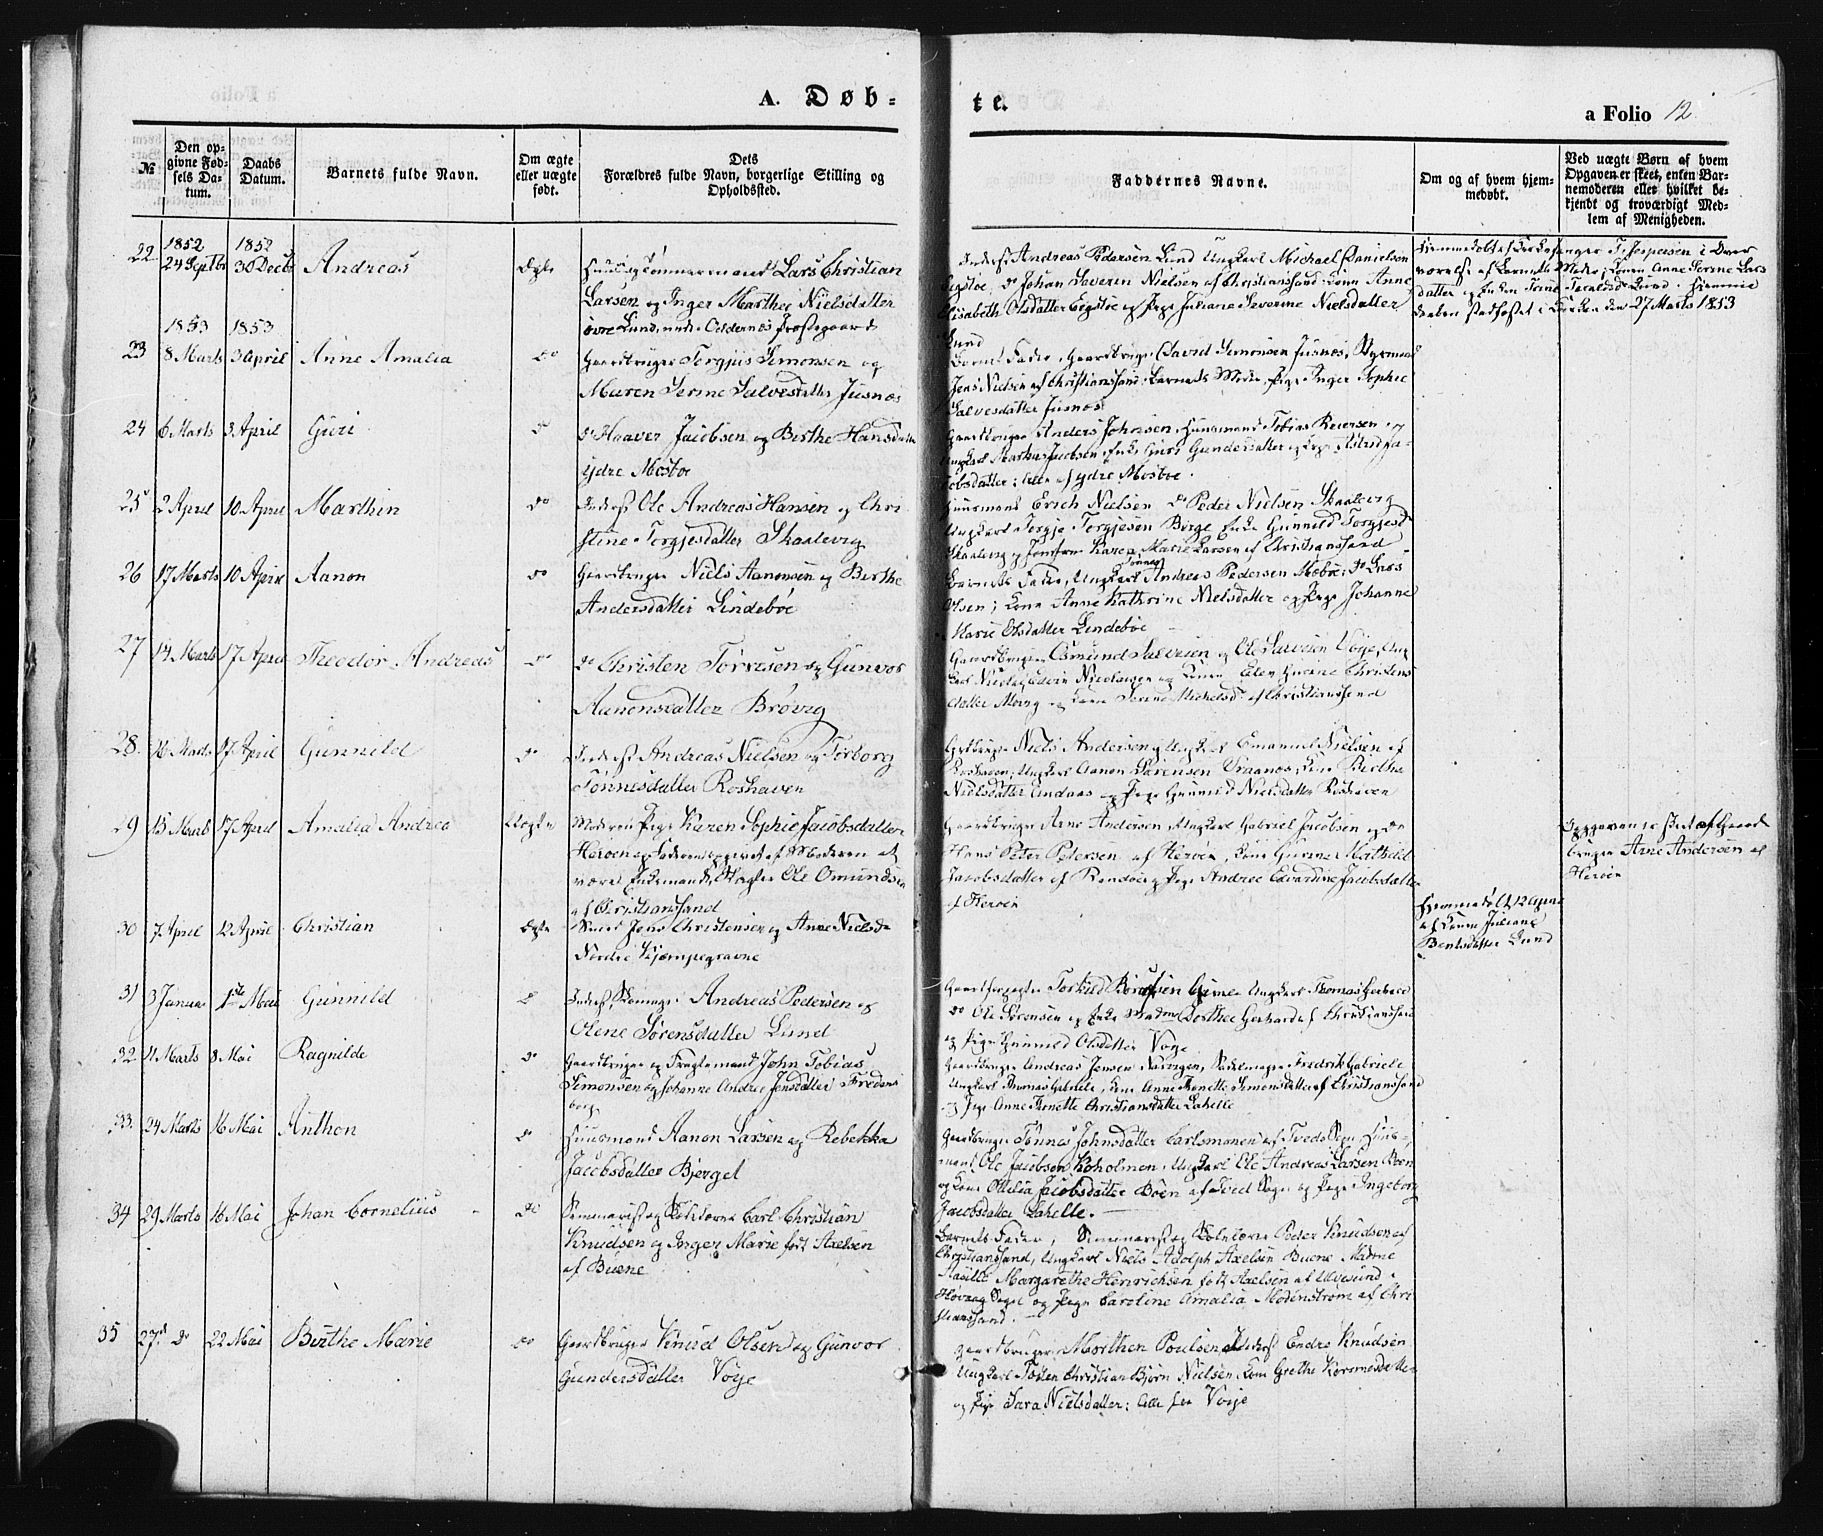 A. Døb=
te.
a Folio 12.
№
Den op-
givne Fød-
sels Da-
tum.
Daabs
Datum.
Barnets fulde Navn.
Om ægte
eller uægte
født.
Dets
Forældres fulde Navn, borgerlige Stilling og
Opholdssted.
Faddernes Navne.
Om og af hvem hjem-
medøbt.
Ved uægte Børn af hvem
Opgaven er skeet, enten Bar-
nemoderen eller hvilket be-
kjendt og troværdigt Med-
lem af Menigheden.
22.
1852
24 Septbr
1852
30 Decbr
Andreas
Ægte
Lars Christian
Larsen og Inger Marthee Nielsdatter
øvre Lund, under Oddernes Præstegaard
Inderst Andreas Pedersen Lund Ungkarl Michael Danielsen
Eigstøe, Do Johan Severin Nielsen af Christiansand; Kone Anne
Elisabeth Olsdatter Eigstøe og Pige Juliane Severine Nielsdatter
Lund
Hjemmedøbt af Kirkesanger T. Jespersen i Over
værelse af Barnets Moder, Konen Anne Serine Lars
datter og Enken Lund. Hjemme
daaben stadfæstet i Kirken den 27 Marts 1853
1853
1853
23
8 Marts
3 April
Anne Amalia
do
Gaardbruger Torgius Simonsen og
Maren Serine Salvesdatter Jusnæs
Barnets Fader, Gaardbruger David Simonsen Jusnæs, Styrmand
Jens Nielsen af Christiansand; Barnets Moder, Pige Inger Sophie
Salvesdatter Jusnæs
24
6 Marts
3 April
Guri
do
Do Haaver Jacobsen og Berthe Hansdatter
ydre Mosbøe
Gaardbruger Anders Johnsen, Huusmand Tobias Reiersen og
Ungkarl Markus Jacobsen, Enke Guri Gundersdatter og Pige Astrid Ja-
cobsdatter; alle af ydre Mosbøe.
25
2 April
10 April
Marthin
do
Inderst Ole Andreas Hansen og Chri-
stine Torgjesdatter Skaalevig
Huusmand Erich Nielsen Do Peder Nielsen Skaalevig
Ungkarl Torgje Torgjesen Berge Enke Gunnild Torgjesd
Skaalevig og Jomfru Karen Marie Larsen af Christianssand
26
17 Marts
10 April
Aanon
do
Gaardbruger Niels Aanonsen og Berthe
Andersdatter Lindebøe
Barnets Fader, Ungkarl Andreas Pedersen Mebøe, Do Lars
Olsen; Kone Anne Kathrine Nielsdatter og Pige Johanne
Marie Olsdatter Lindebøe
27
14 Marts
17 April
Theodor Andreas
do
Do Christen Torresen og Gunvor
Aanonsdatter Brøvig
Gaardbruger Osmund Salvesen og Ole Salvesen Voje, Ung
karl Nicolaisen og Konen Elen Gurine Christens
datter og Kone Serine Michelsd. af Christianssand
28.
16 Marts
17 April
Gunnild
do
Inderst Andreas Nielsen og Torborg
Tønnesdatter Roshaven
Niels Andersen og Ungkarl Emanuel Nielsen af
Roshaven; Ungkarl Aanon Sørensen Kone Berthe
Nielsdatter og Pige Gunnild Nielsdatter Roshaven
29
13 Marts
17 April
Amalia Andrea
Uægte
Moderen Pige Karen Sophie Jacobsdatter
Herøen og Faderen opgivet af Moderen at
være Enkemand Ole Omundsen
af Christianssand
Gaardbruger Arne Andersen, Ungkarl Gabriel Jacobsen og do
Hans Peter Petersen af Herøen, Kone Gurine Mathilde
Jacobsdatter af Randøe og Pige Andrea Edvardine Jacobsdatter
af Herøen
Opgaven er skeet af Gaard
bruger Arne Andersen af
Herøen
30
7 April
12 April
Christian
Ægte
Smed Jens Christensen og Anne Nielsd.
Nordre Kjæmpegravne
Hjemmedøbt 12 April
af Konen Juliane
Berntsdatter Lund
31
3 Januar
1ste Mai
Gunnild
do
Inderst Andreas Pedersen og
Olene Sørensdatter Lund
Torkild Grim Ungkarl Thomas
do Ole Sørensen og Enke Madm Dorthea Gerhard af Christianssand
og Pige Gunnild Olsdatter Voge
32.
11 Marts
8 Mai
Ragnilde
do
Gaardbruger og Fragtemand John Tobias
Simonsen og Johanne Andrea Jensdatter Fredens
borg
Gaardbruger Andreas Jensen Fredrik Gabriele
Ungkarl Thomas Gabriele, Kone Anne Tonette Simonsdatter af Christianssand
og Pige Anne Tonette Christiansdatter Lahelle
33.
24 Marts
16 Mai
Anthon
do
Huusmand Aanon Larsen og Rebekka
Jacobsdatter Bjerget
Gaardbruger Tønnes Johnsdatter af Tvede Sogn, Huus-
mand Ole Jacobsen Koholmen, Ungkarl Ole Andreas Larsen Boen
og Kone Ottilia Jacobsdatter Boen af Tved Sogn og Pige Ingeborg
Jacobsdatter Lahelle.
34
29 Marts
16 Mai
Johan Cornelius
do
Seminarist og Skolelærer Carl Christian
Knudsen og Inger Marie født Axelsen
af Buene
Barnets Fader, Seminarist og Skolelærer Peder Knudsen af
Christianssand, Ungkarl Niels Adolph Axelsen Buene Madme
Margarethe Henrichsen født Axelsen af Ulvesund i
Høvaag Sogn og Pige Caroline Amalia Modenstrøm af Chri
stianssand.
35
27de do
22 Mai
Birthe Marie
do
Gaardbruger Knud Olsen og Gunvor
Gundersdatter Voje
Gaardbruger Morthen Poulsen, Inderst Endre Knudsen
Ungkarl Christian Bjørn Nielsen, Kone Grethe
og Pige Sara Nielsdatter; alle fra Voje